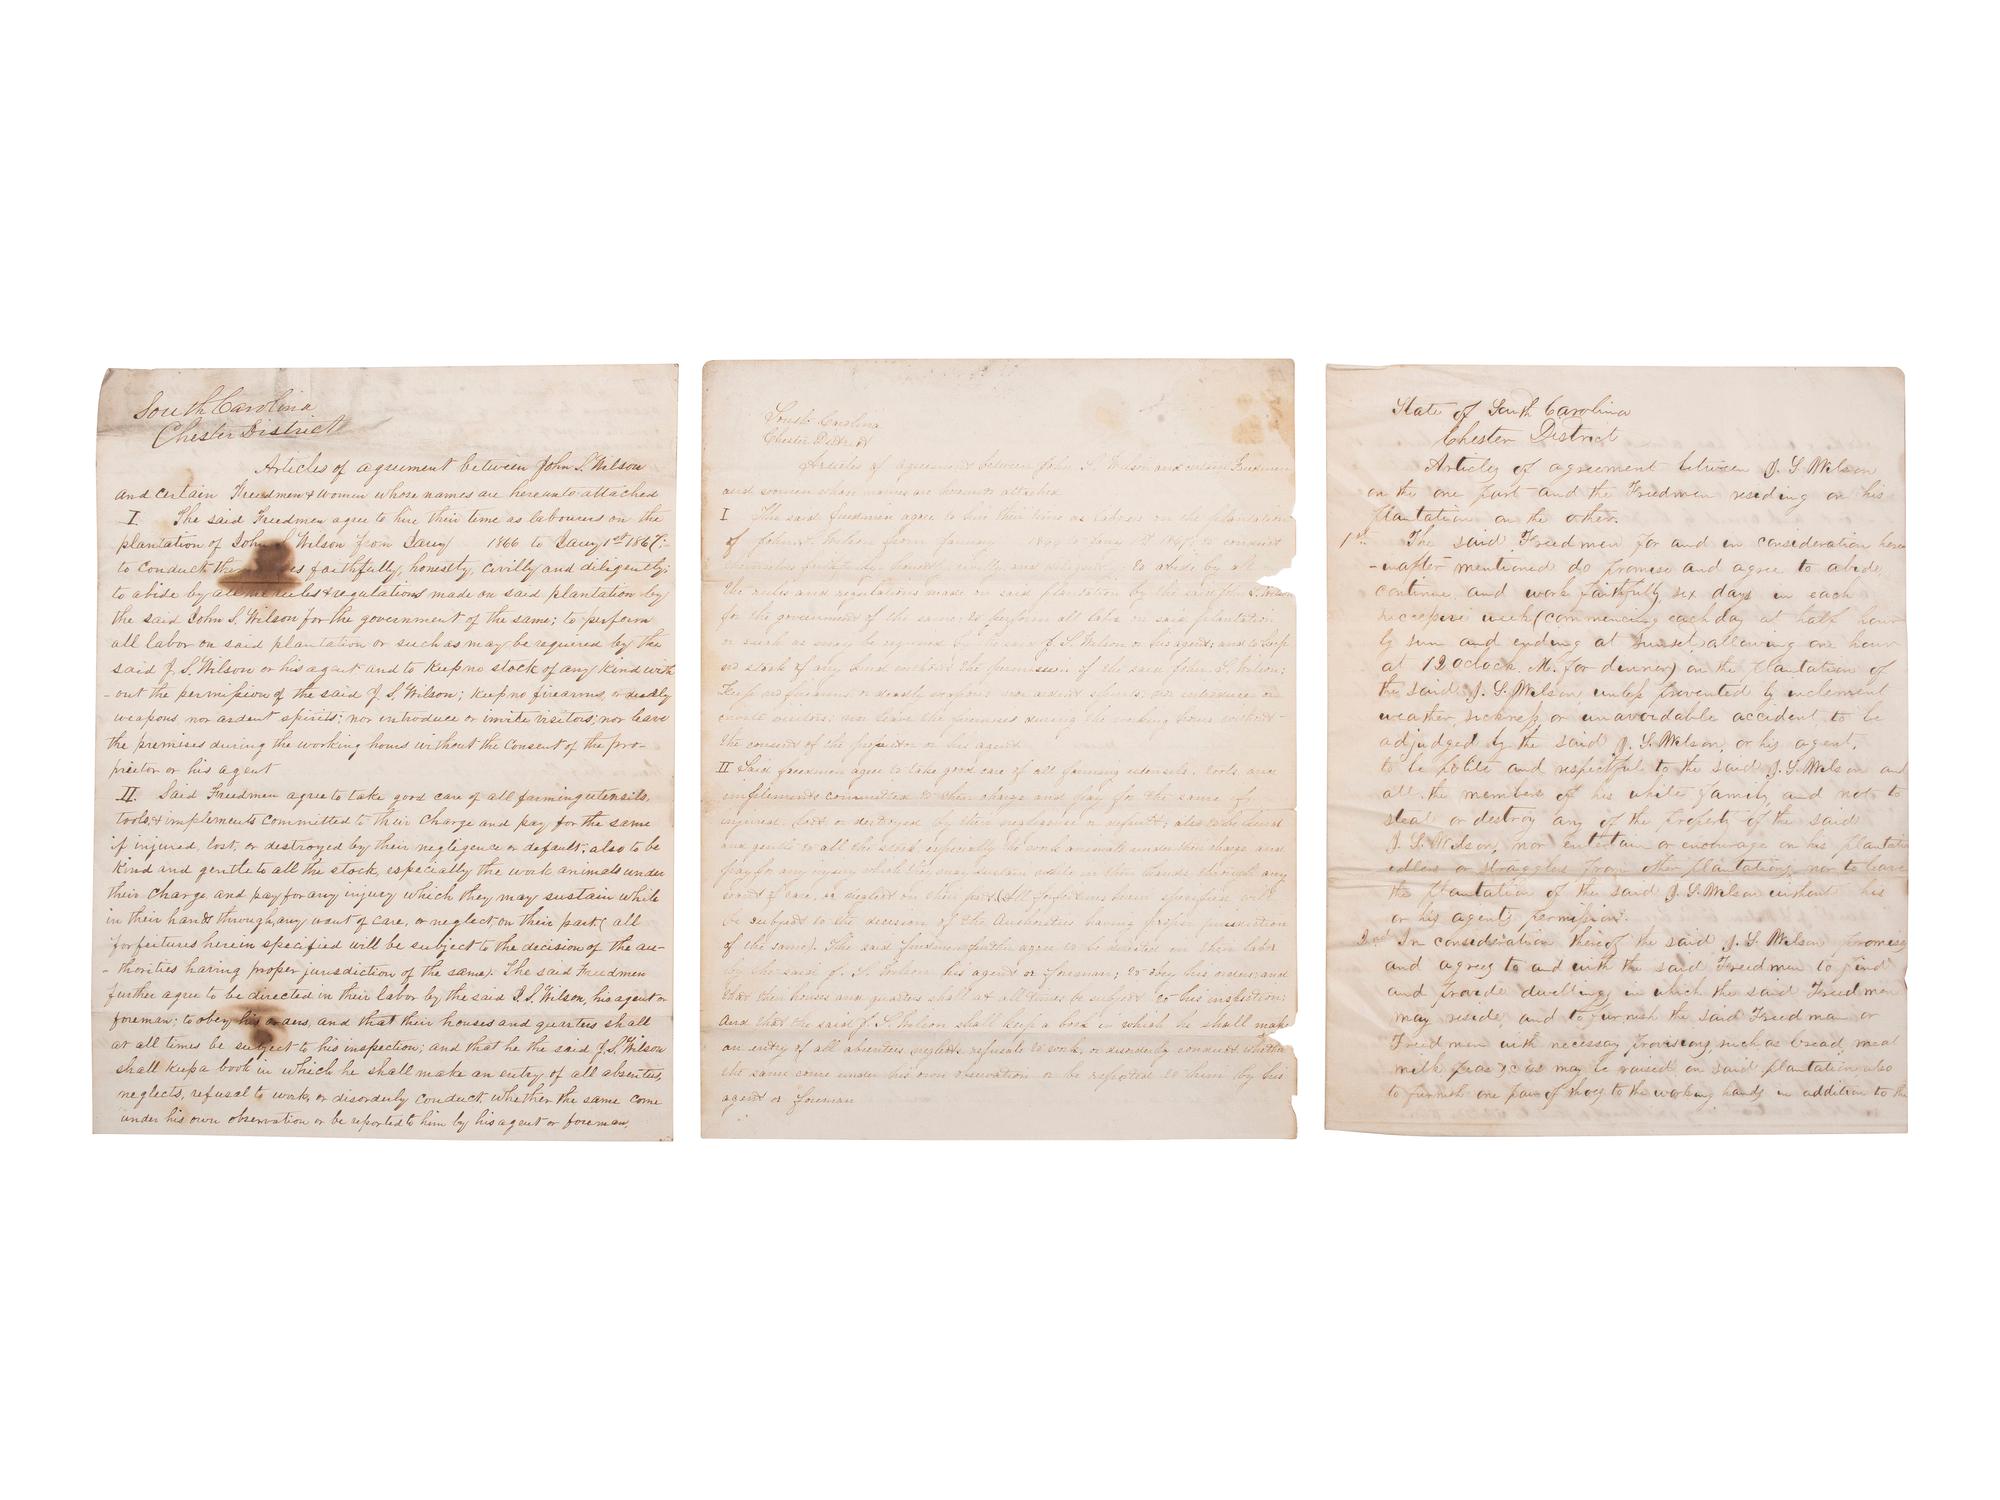 South Carolina
Chester District
Articles of agreement between John S. Wilson
and certain Freedmen & women whose names are hereunto attached
I. The said Freedmen agree to hire their time as labourers on the
plantation of John S. Wilson from Jany 1866 to Jany 1st 1867:-
to conduct faithfully, honestly, civilly and diligently;
to abide by all the rules & regulations made on said plantation by
the said John S. Wilson for the government of the same; to perform
all labor on said plantation or such as may be required by the
said J. S. Wilson or his agent and to keep no stock of any kind with
-out the permission of the said J. S. Wilson; keep no firearms, or deadly
weapons nor ardent spirits; nor introduce or invite visitors; nor leave
the premises during the working hours without the consent of the pro-
prietor or his agent
II. Said Freedmen agree to take good care of all farming utensils,
tools & implements committed to their charge and pay for the same
if injured, lost, or destroyed by their neglegence or default. also to be
kind and gentle to all the stock, especially the work animals under
their charge, and pay for any injury which they may sustain while
in their hands through any want of care, or neglect, on their part ( all
forfeitures herein specified will be subject to the decision of the au-
-thorities having proper jurisdiction of the same). The said Freedmen
further agree to be directed in their labor by the said J. S. Wilson, his agent or
foreman; to obey his orders, and that their houses and quarters shall
at all times be subject to his inspection; and that he the said J. S. Wilson
shall keep a book in which he shall make an entry of all absentees,
neglects, refusal to work, or disorderly conduct, whether the same come
under his own observation or be reported to him by his agent or foreman,
South Carolina
Chester District
Articles of agreement between John S. Wilson and certain Freedmen
and women whose names are hereunto attached
I The said freedmen agree to hire their time as labors on the plantation
of John S. Wilson from January 1866 to Jany 1st 1867; to conduct
themselves faithfully, honestly, civilly and diligently; to abide by all
the rules and regulations made on said plantation by the said John S. Wilson
for the government of the same; to perform all labor on said plantation
or such as may be required by the said J. S. Wilson or his agent; and to keep
no stock of any kind without the permission of the said John S. Wilson;
Keep no firearms or deadly weapons nor ardent spirits; nor introduce or
invite visitors; nor leave the premises during the working hours without-
the consent of the proprietor or his agent
II Said freedmen agree to take good care of all farming utensils, tools and
implements committed to their charge and pay for the same if
injured, lost or destroyed by their negligence or default; also to be kind
and gentle to all the stock especially the work animals under their charge, and
pay for any injury which they may sustain while in their hands through any
want of care, or neglect on their part (All forfeitures herein specified will
be subject to the decision of the Authorities having proper jurisdiction
of the same). The said freedmen further agree to be directed in their labor
by the said J. S. Wilson his agent or foreman; to obey his orders; and
that their houses and quarters shall at all times be subject to his inspection;
And that the said J. S. Wilson shall keep a book in which he shall make
an entry of all absentees, neglects, refusals to work, or disorderly conduct whether
the same come under his own observation or be reported to him by his
agent or foreman
State of South Carolina
Chester District
Articles of agreement between J. S. Wilson
on the one part and the Freedmen residing on his
plantation on the other.
1st The said Freedmen for and in consideration here
-inafter mentioned do promise and agree to abide,
continue, and work faithfully, six days in each
week (commencing each day at half hour
by sun and ending at Sunset, allowing one hour
at 12 Oclock. M. for dinner) on the plantation of
the said J. S. Wilson, unless prevented by inclement
weather, sickness, or unavoidable accident, to be
adjudged by the said J. S. Wilson, or his agent,
to be polite and respectful to the said J. S. Wilson and
all the members of his white family, and not to
steal or destroy any of the property of the said
J. S. Wilson, nor entertain or encourage on his plantation
idlers or stragglers from other plantations, nor to leave
the plantation of the said J. S. Wilson without his
or his agents permission.
2nd In consideration thereof the said J. S. Wilson promises
and agrees to and with the said Freedmen to find
and provide dwelling, in which the said Freedmen
may reside, and to furnish the said Freedman or
Freedmen with necessary provisions, such as bread, meal
milk peas &c as may be raised on said plantation, also
to furnish one pair of shoes to the working hands in addition to the